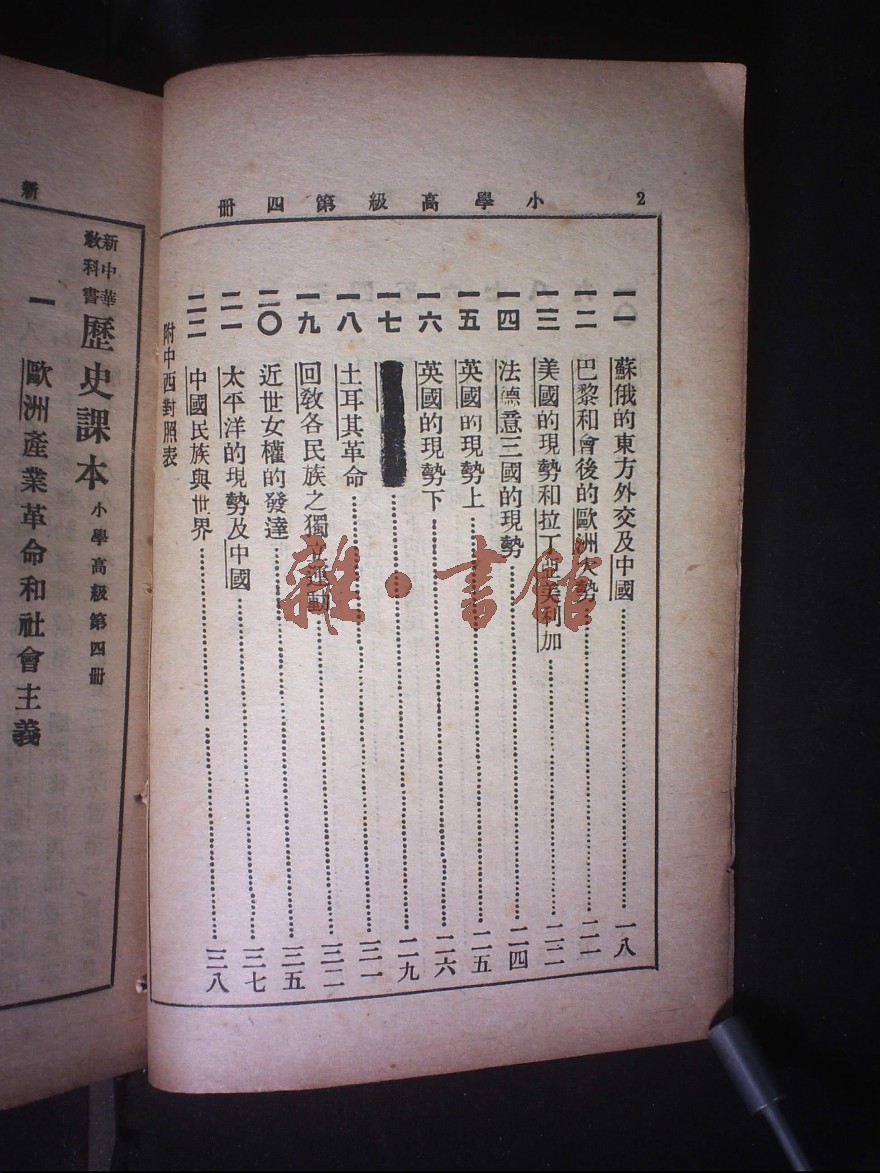 小學高級第四冊 2
一一 蘇俄的東方外交及中國 一八
一二 巴黎和會後的歐洲大勢 二一
一三 美國的現勢和拉丁亞美利加 二三
一四 法德意三國的現勢 二四
一五 英國的現勢上 二五
一六 英國的現勢下 二六
一七 二九
一八 土耳其革命 三一
一九 回教各民族之獨立運動 三二
二〇 近世女權的發達 三五
二一 太平洋的現勢及中國 三七
二二 中國民族與世界 三八
附中西對照表
新
新中華
教科書
歷史課本 小學高級第四冊
一 歐洲產業革命和社會主義
雜·書館